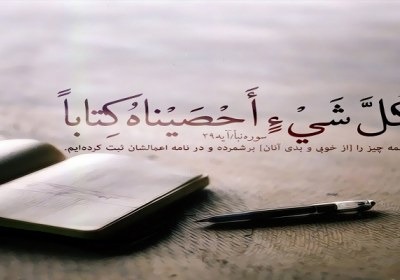 كُلَّ شَيْءٍ أَحْصَيْنَاهُ كِتَاباً
سوره نبأ/آیه ۲۹
همه چیز را [از خوبی و بدی آنان] برشمرده و در نامه اعمالشان ثبت کرده‌ایم.